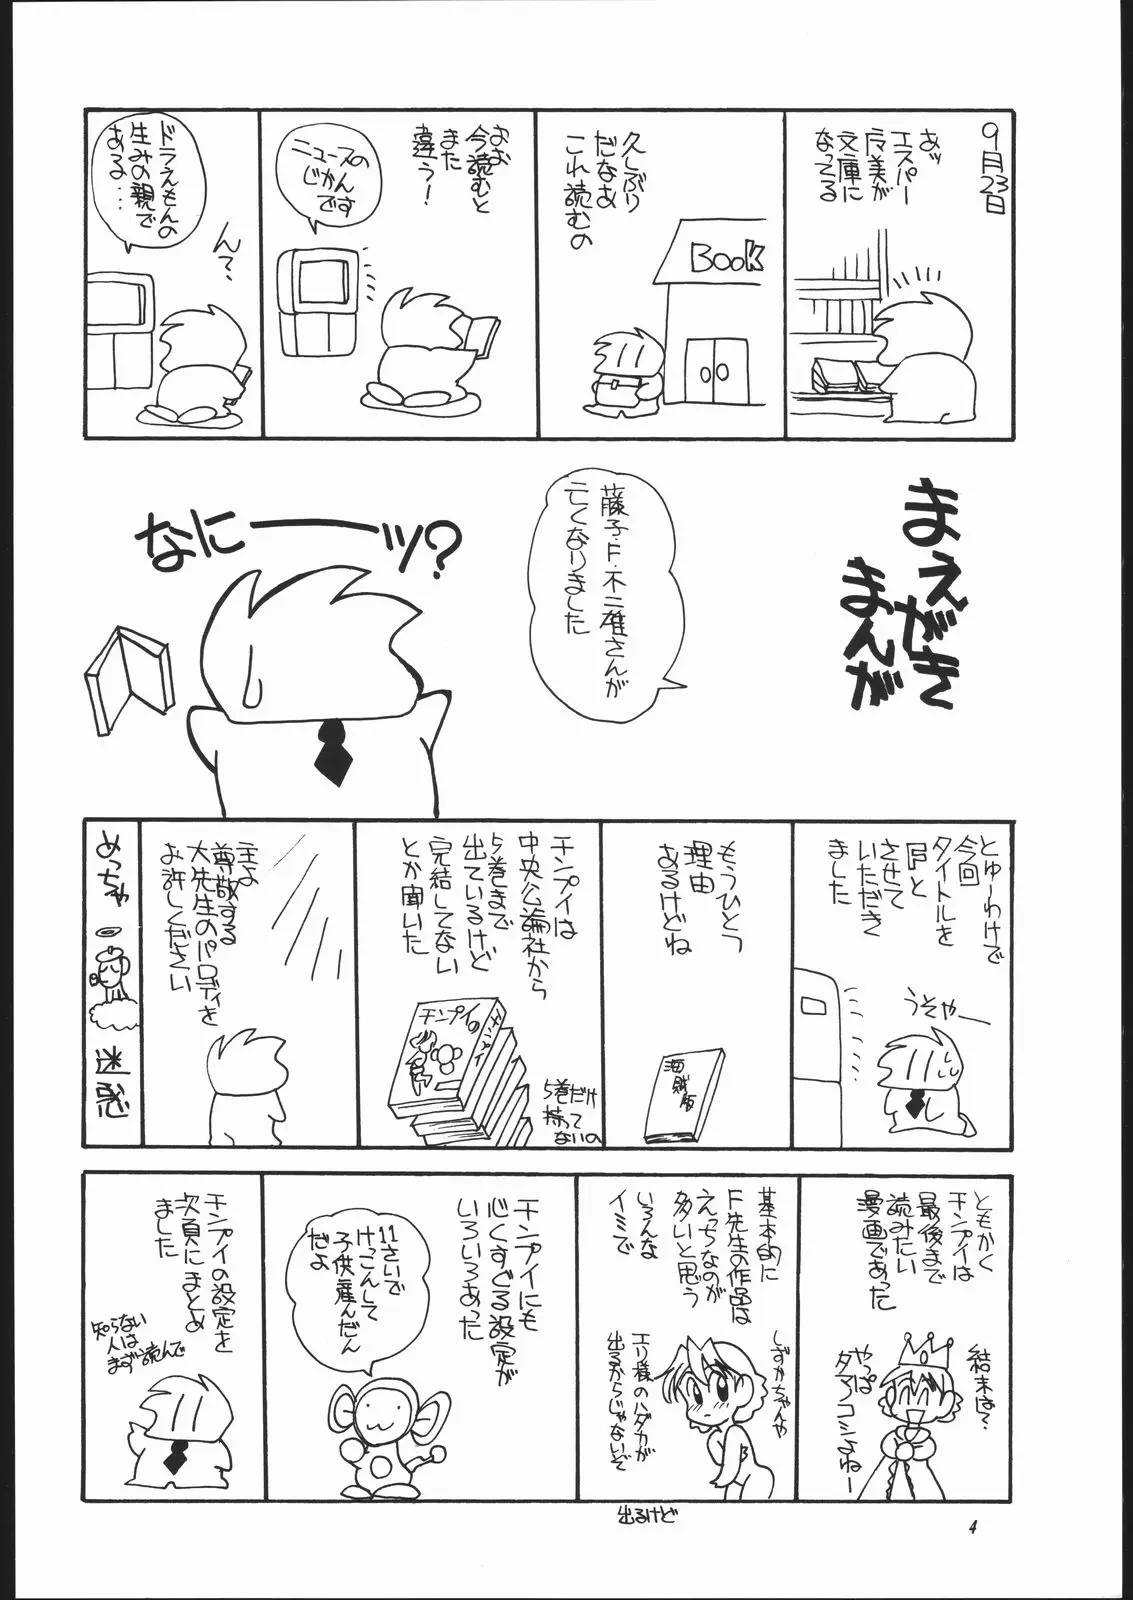 9月23日
あッ
エスパー
魔美が
文庫に
なってる
Book
久しぶり
だなあ
これ読むの
おお
今読むと
また
違う!
ニュースの
じかん
です
ドラえもんの
生みの親で
ある…
ん?
まえがき
まんが
藤子・F・不二雄さんが
亡くなりました
なにーーッ?
とゆーわけで
今回
タイトルを
『F』と
させて
いただき
ました
うそやー
もうひとつ
理由
あるけどね
海賊版
チンプイは
中央公論社から
5巻まで
出ているけど
完結してない
とか聞いた
チンプイ
チンプイ
5巻だけ
持って
ないの
主よ
尊敬する
大先生のパロディを
お許しください
めっちゃ
迷惑
ともかく
チンプイは
最後まで
読みたい
漫画であった
結末は?
やっぱ
タマノコシよねー
基本的に
F先生の作品は
えっちなのが
多いと思う
いろんな
イミで
しずかちゃんや
エリ様のハダカが
出るからじゃないぞ
出るけど
チンプイにも
心くすぐる設定が
いろいろあった
11さいで
けっこんして
子供産んだん
だよ
チンプイの設定を
次頁にまとめ
ました
知らない
人は
まず読んで
4